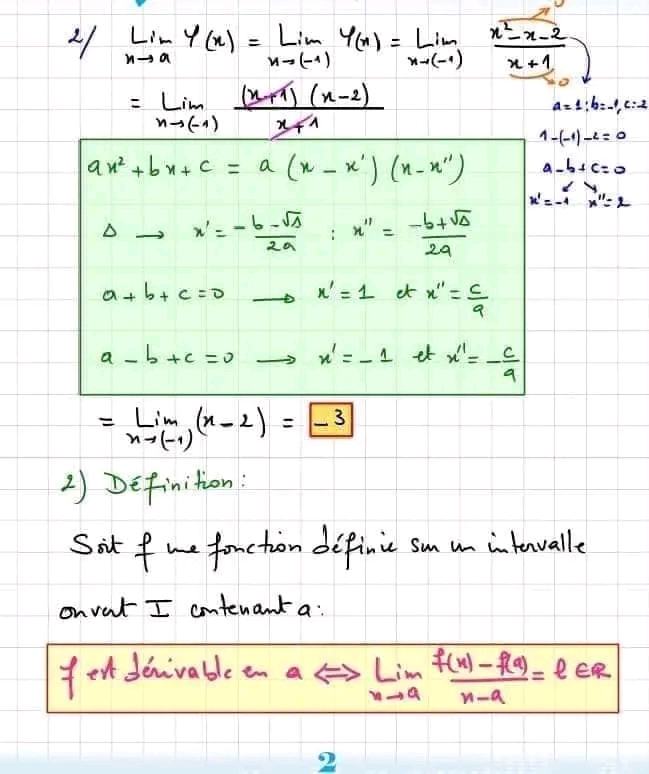 2/ Lim Y(x) = Lim Y(x) = Lim x²-x-2 / x+1
x→a x→(-1) x→(-1)
0
0
= Lim (x+1)(x-2) / x+1
x→(-1)
a=1; b=-1, c=-2
1-(-1)-2=0
a-b+c=0
x'=-1 x''=2
ax²+bx+c = a(x-x')(x-x'')
Δ → x' = -b-√Δ / 2a : x'' = -b+√Δ / 2a
a+b+c=0 → x'=1 et x''= c/a
a-b+c=0 → x'=-1 et x''= -c/a
= Lim (x-2) = -3
x→(-1)
2) Définition:
Soit f une fonction définie sur un intervalle
ouvert I contenant a:
f est dérivable en a ⇔ Lim f(x)-f(a) / x-a = l ∈ R
x→a
2